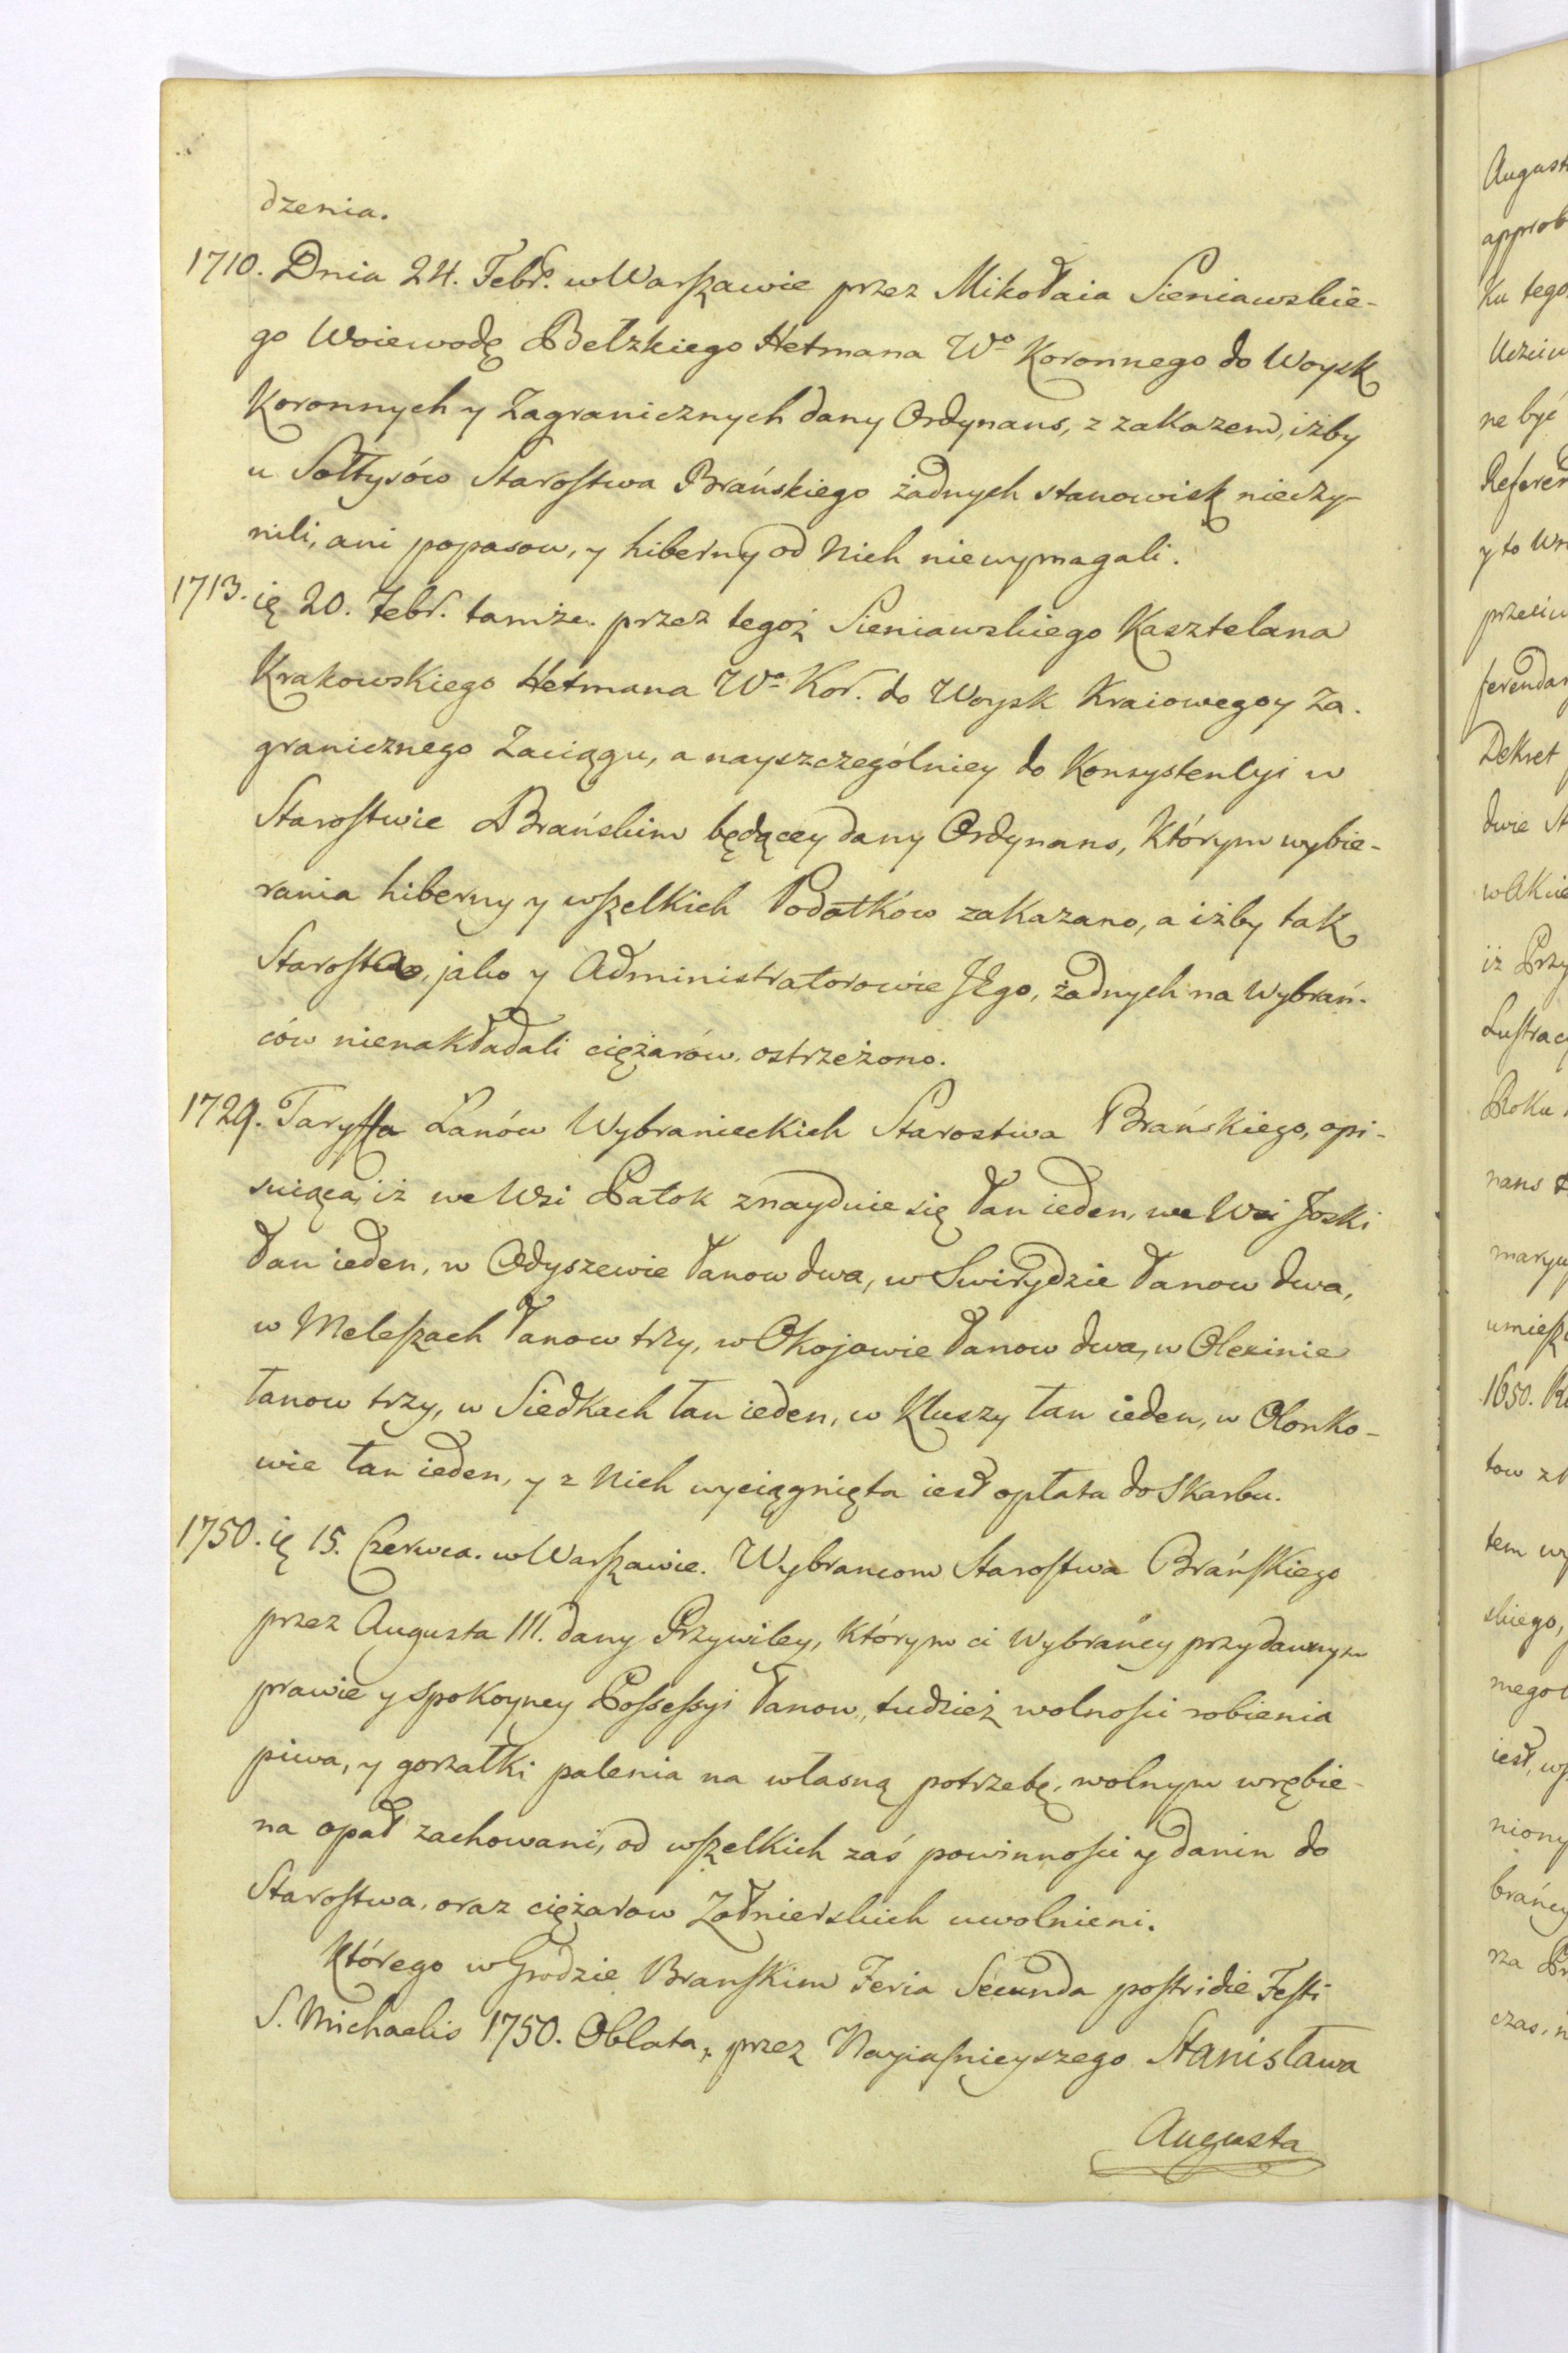 dzenia.
1710. Dnia 24. Febr. w Warszawie przez Mikołaia Sieniawskie-
go Woiewodę Bełzkiego Hetmana Wo Koronnego do Woysk
Koronnych y Zagranicznych dany Ordynans, z zakazem, iżby
u Sołtysów Starostwa Brańskiego żadnych stanowisk nieczy-
nili, ani popasow, y hiberny od Nich niewymagali.
1713. ię 20. Febr. tamże. przez tegoż Sieniawskiego Kasztelana
Krakowskiego Hetmana Wo Kor. do Woysk Kraiowego y Za-
granicznego Zaciągu, a nayszczególniey do Konsystencyi w
Starostwie Brańskim będącey dany Ordynans, Którym wybie-
rania hiberny y wszelkich Podatków zakazano, a iżby tak
Starosta, jako y Administratorowie JEgo, żadnych na Wybrań-
ców nienakładali ciężarów, ostrzeżono.
1729. Taryffa Łanów Wybranieckich Starostwa Brańskiego, opi-
suiąca, iż we Wsi Patok znayduie się łan ieden, we Wsi Joski
łan ieden, w Odyszewie łanow dwa, w Swirydzie łanow dwa,
w Meleszach łanow trzy, w Chojewie łanow dwa, w Olexinie
łanow trzy, w Siedkach łan ieden, w Kluszy łan ieden, w Olonko-
wie łan ieden, y z Nich wyciągnięta iest opłata do Skarbu.
1750. ię 15. Czerwca. w Warszawie. Wybrancom Starostwa Brańskiego
przez Augusta III. dany Przywiley, Którym ci Wybrańcy przy dawnym
prawie y spokoyney Possessyi łanow, tudzież wolności robienia
piwa, y gorzałki palenia na własną potrzebę, wolnym wrębie
na opał zachowani, od wszelkich zaś powinności y danin do
Starostwa, oraz ciężarow Żołnierskich uwolnieni.
Którego w Grodzie Branskim Feria Secunda postridie Festi
S. Michaelis 1750. Oblata, przez Nayiaśnieyszego Stanisława
Augusta